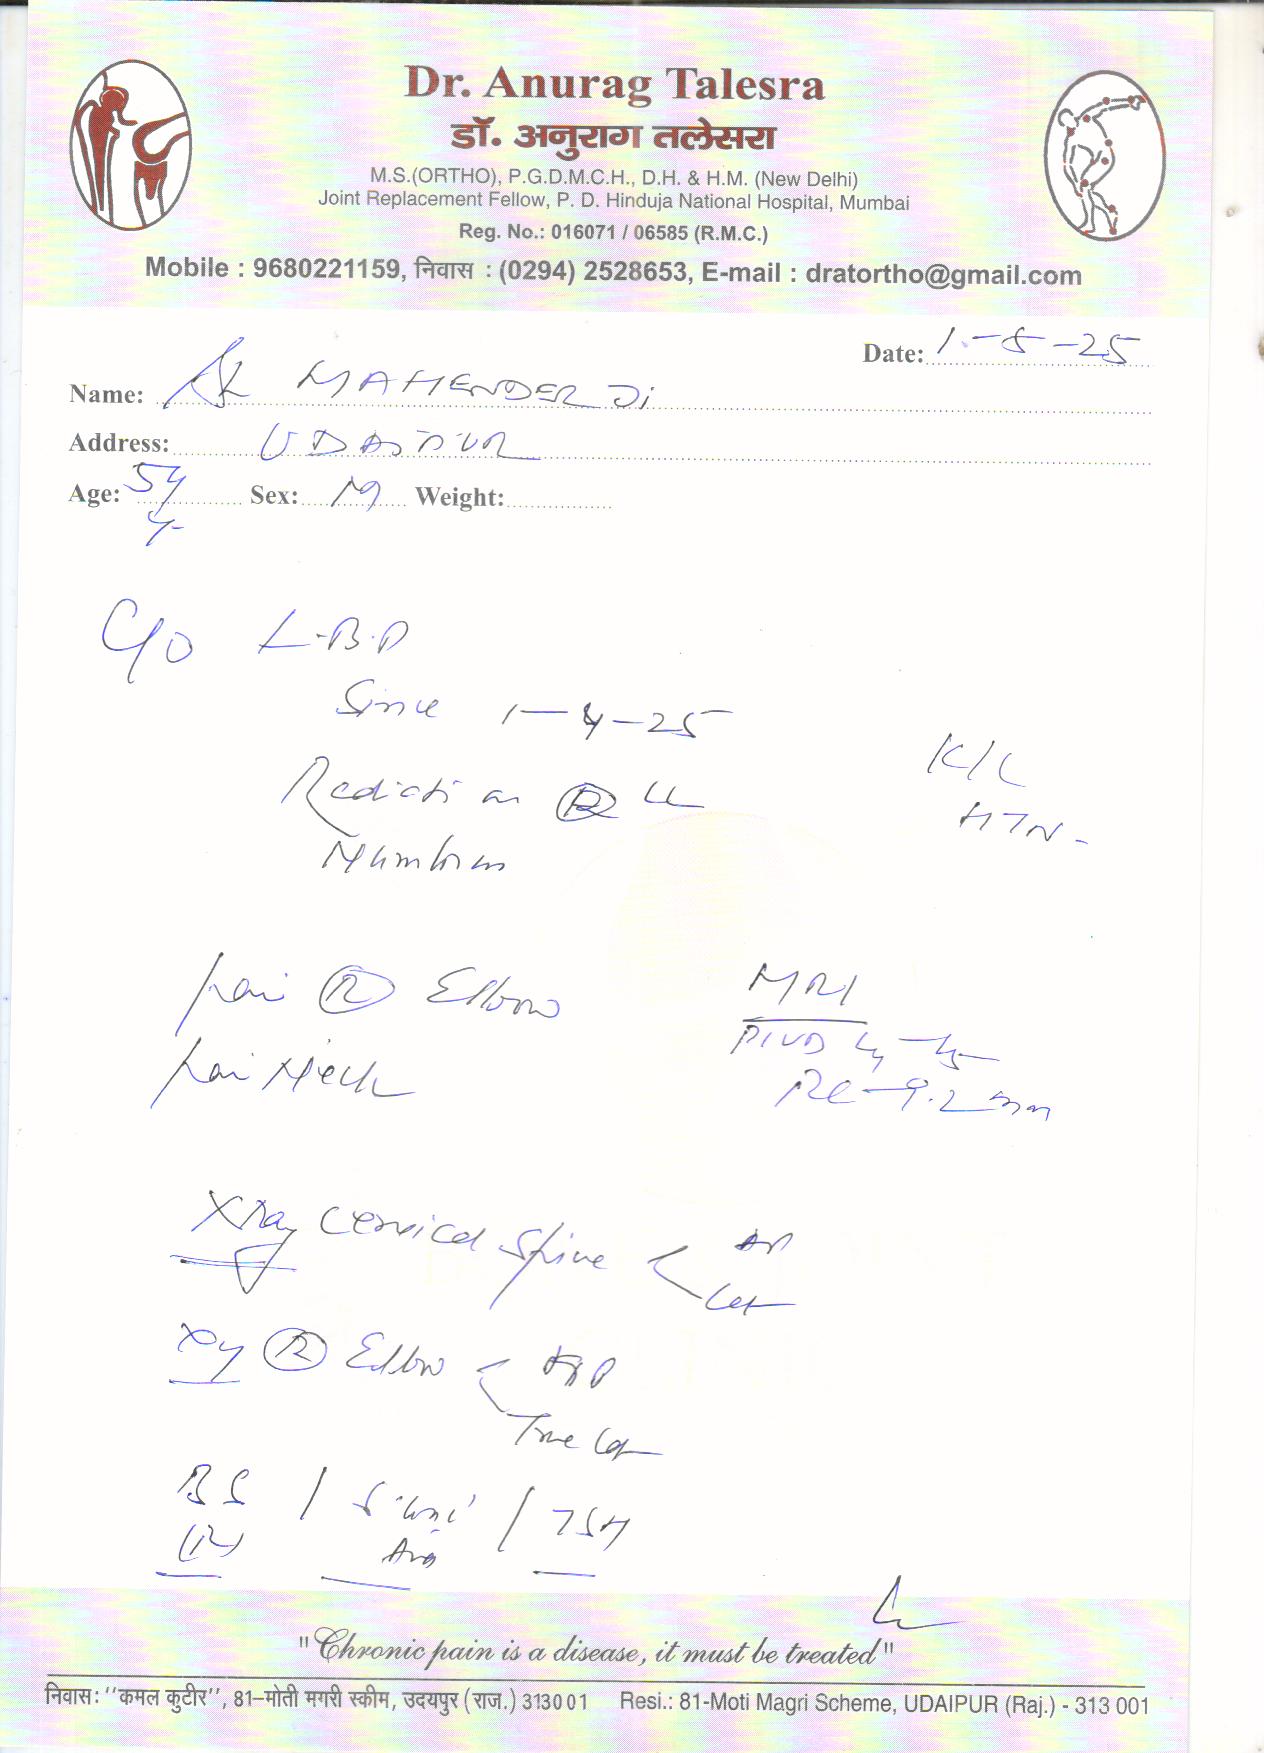 Dr. Anurag Talesra
डॉ. अनुराग तलेसरा
M.S.(ORTHO), P.G.D.M.C.H., D.H. & H.M. (New Delhi)
Joint Replacement Fellow, P. D. Hinduja National Hospital, Mumbai
Reg. No.: 016071 / 06585 (R.M.C.)
Mobile : 9680221159, निवास : (0294) 2528653, E-mail : dratortho@gmail.com
Date: 1-5-25
Name: MAHENDER Ji
Address: UDAIPUR
Age: 54 Sex: M Weight:
y
C/O L.B.P
Since 1-4-25
K/C
Radiation R LL
HTN
Numbness
pain R Elbow
MRI
pain Neck
PIVD L4-L5
9.2 mm
Xray Cervical Spine < AP
Lat
Xy R Elbow < AP
True Lat
BS / S. Uric / TSH
(R) Acid
"Chronic pain is a disease, it must be treated"
निवास: "कमल कुटीर", 81-मोती मगरी स्कीम, उदयपुर (राज.) 313001 Resi.: 81-Moti Magri Scheme, UDAIPUR (Raj.) - 313 001